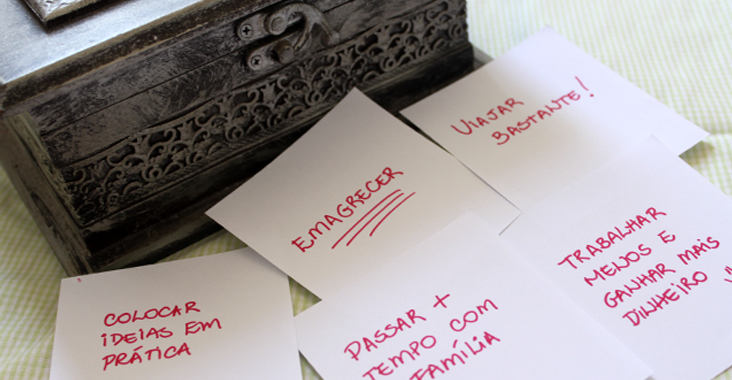 VIAJAR
BASTANTE!
EMAGRECER
TRABALHAR
MENOS E
GANHAR MAIS
DINHEIRO
COLOCAR
IDEIAS EM
PRÁTICA
PASSAR +
TEMPO COM
FAMÍLIA